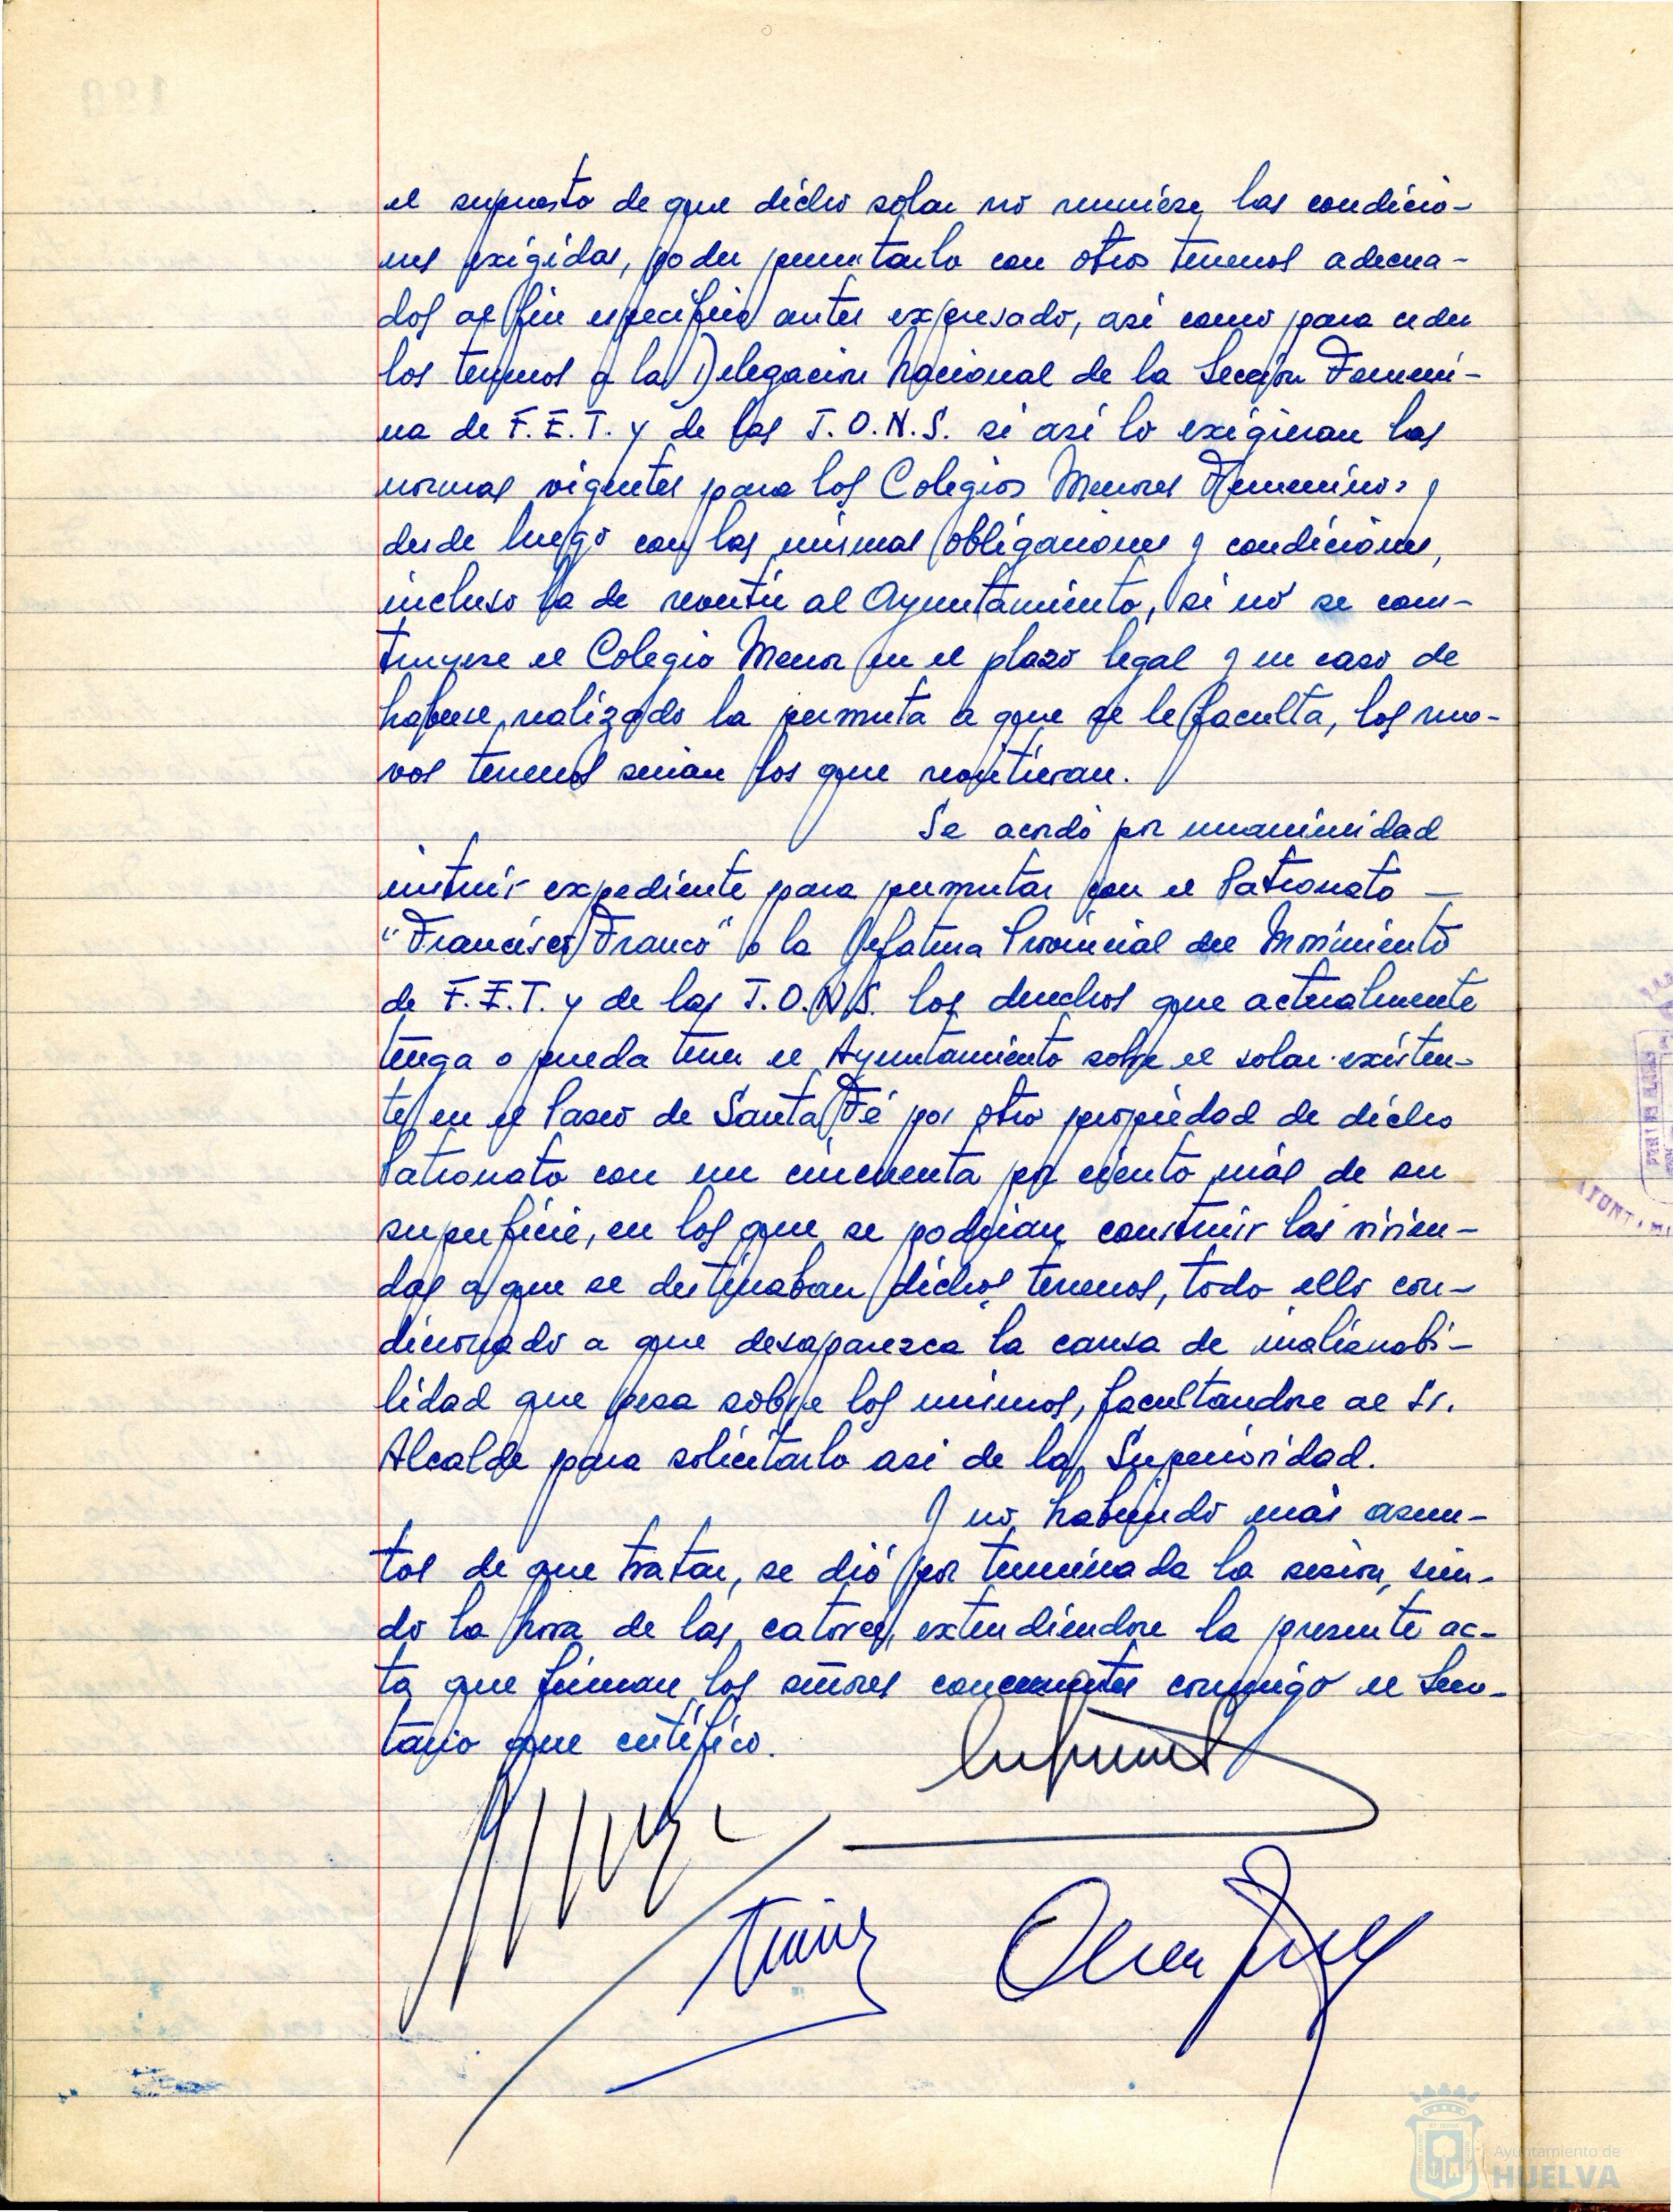 el supuesto de que dicho solar no reuniese las condicio-
nes exigidas, poder permutarlo con otros terrenos adecua-
dos al fin especifico antes expresado, asi como para ceder
los terrenos a la Delegación Nacional de la Sección Femeni-
na de F.E.T. y de las J.O.N.S. si asi lo exigieran las
normas vigentes para los Colegios Menores Femeninos y
desde luego con las mismas obligaciones y condiciones,
incluso la de revertir al Ayuntamiento, si no se cons-
truyese el Colegio Menor en el plazo legal y en caso de
haberse realizado la permuta a que se le faculta, los nue-
vos terrenos serian los que revertieran.
Se acordó por unanimidad
instruir expediente para permutar con el Patronato -
"Francisco Franco" o la Jefatura Provincial del Movimiento
de F.E.T. y de las J.O.N.S. los derechos que actualmente
tenga o pueda tener el Ayuntamiento sobre el solar existen-
te en el Paseo de Santa Fé por otro propiedad de dicho
Patronato con un cincuenta por ciento más de su
superficie, en los que se podrian construir las vivien-
das a que se destinaban dichos terrenos, todo ello con-
dicionado a que desaparezca la causa de inalienabi-
lidad que pesa sobre los mismos, facultandose al Sr.
Alcalde para solicitarlo asi de la Superioridad.
Y no habiendo más asun-
tos de que tratar, se dió por terminada la sesión, sien-
do la hora de las catorce, extendiendose la presente ac-
ta que firman los señores concurrentes conmigo el Secre-
tario que certifico.
Ayuntamiento de
HUELVA